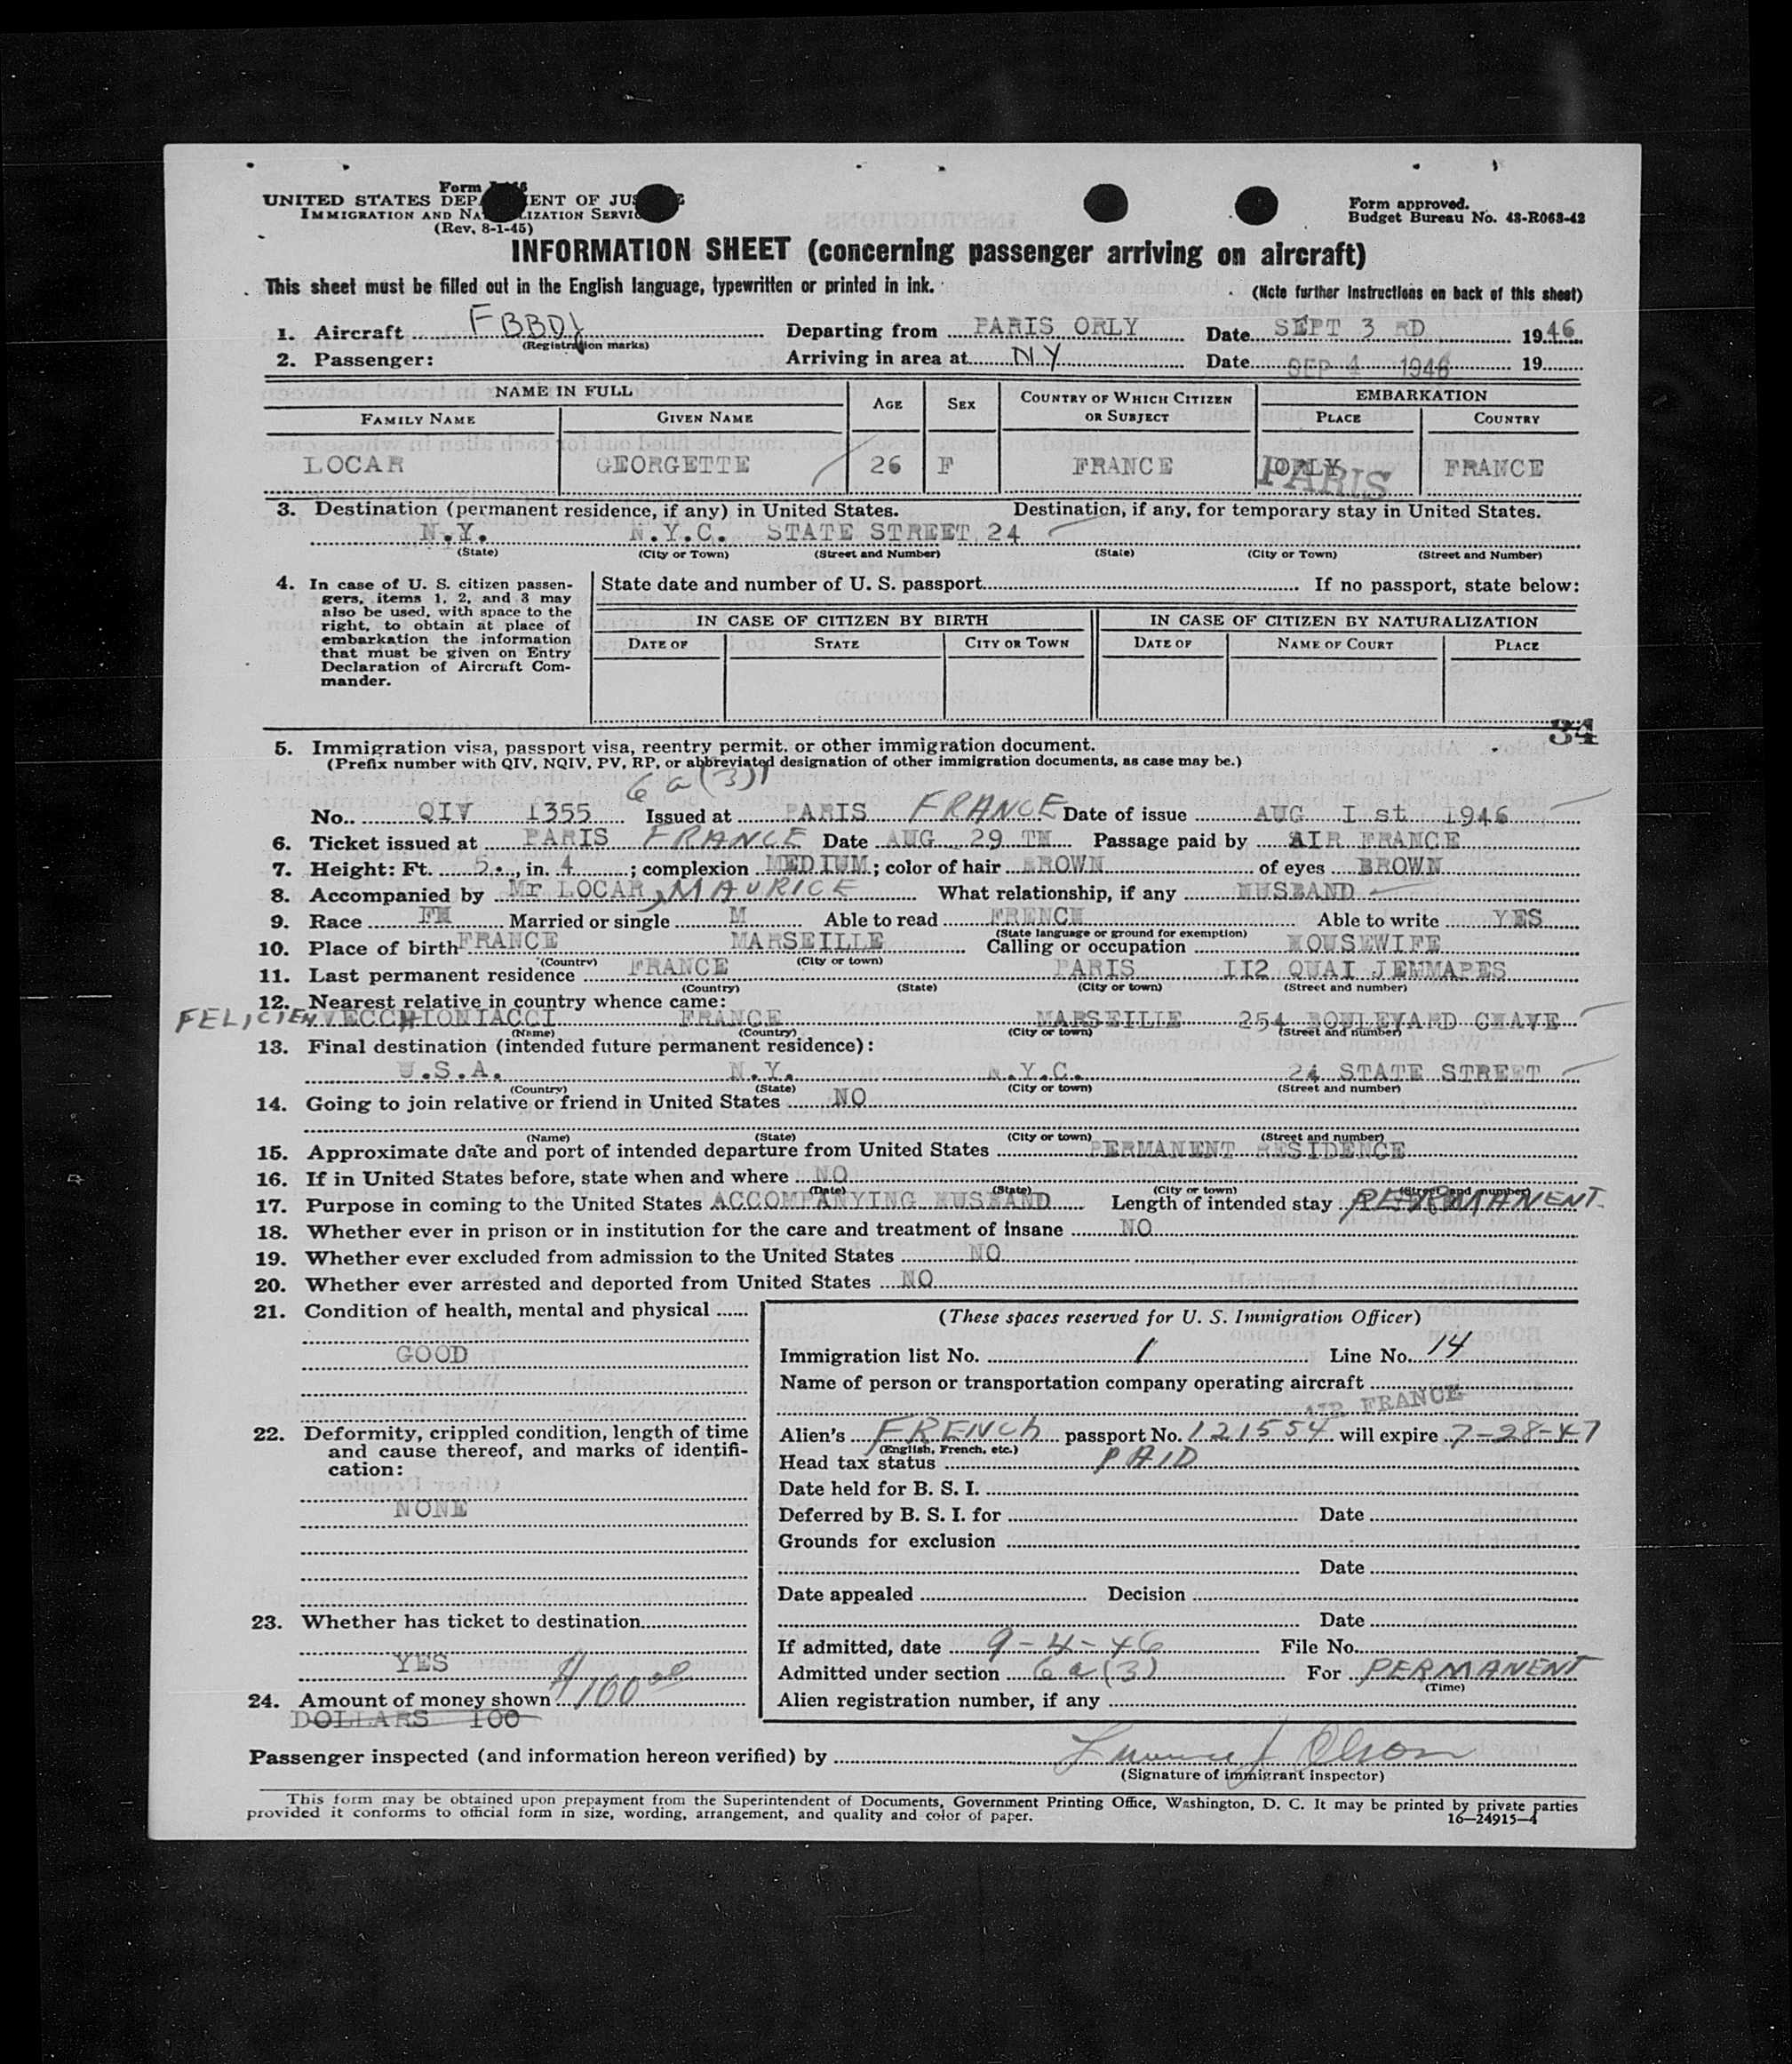 Form
UNITED STATES DEPARTMENT OF JUSTICE
IMMIGRATION AND NATURALIZATION SERVICE
(Rev. 8-1-45)
Form approved.
Budget Bureau No. 43-R063-42
INFORMATION SHEET (concerning passenger arriving on aircraft)
This sheet must be filled out in the English language, typewritten or printed in ink.
(Note further instructions on back of this sheet)
1. Aircraft FBBDJ Departing from PARIS ORLY Date SEPT 3 RD 1946
(Registration marks)
2. Passenger: Arriving in area at NY Date SEP 4 1946 19
NAME IN FULL AGE SEX COUNTRY OF WHICH CITIZEN OR SUBJECT EMBARKATION
FAMILY NAME GIVEN NAME PLACE COUNTRY
LOCAR GEORGETTE 26 F FRANCE ORLY PARIS FRANCE
3. Destination (permanent residence, if any) in United States. Destination, if any, for temporary stay in United States.
N.Y. N.Y.C. STATE STREET 24
(State) (City or Town) (Street and Number) (State) (City or Town) (Street and Number)
4. In case of U. S. citizen passengers, items 1, 2, and 3 may also be used, with space to the right, to obtain at place of embarkation the information that must be given on Entry Declaration of Aircraft Commander.
State date and number of U. S. passport If no passport, state below:
IN CASE OF CITIZEN BY BIRTH IN CASE OF CITIZEN BY NATURALIZATION
DATE OF STATE CITY OR TOWN DATE OF NAME OF COURT PLACE
34
5. Immigration visa, passport visa, reentry permit, or other immigration document.
(Prefix number with QIV, NQIV, PV, RP, or abbreviated designation of other immigration documents, as case may be.)
6 a (3)
No. QIV 1355 Issued at PARIS FRANCE Date of issue AUG I st 1946
6. Ticket issued at PARIS FRANCE Date AUG 29 TH Passage paid by AIR FRANCE
7. Height: Ft. 5., in. 4 ; complexion MEDIUM; color of hair BROWN of eyes BROWN
8. Accompanied by Mr LOCAR, MAURICE What relationship, if any HUSBAND
9. Race FH Married or single M Able to read FRENCH Able to write YES
(State language or ground for exemption)
10. Place of birth FRANCE MARSEILLE Calling or occupation HOUSEWIFE
(Country) (City or town)
11. Last permanent residence FRANCE PARIS II2 QUAI JEMMAPES
(Country) (State) (City or town) (Street and number)
12. Nearest relative in country whence came:
FELICIEN VECCHIONIACCI FRANCE MARSEILLE 254 BOULEVARD CHAVE
(Name) (Country) (City or town) (Street and number)
13. Final destination (intended future permanent residence):
U.S.A. N.Y. N.Y.C. 24 STATE STREET
(Country) (State) (City or town) (Street and number)
14. Going to join relative or friend in United States NO
(Name) (State) (City or town) (Street and number)
15. Approximate date and port of intended departure from United States PERMANENT RESIDENCE
16. If in United States before, state when and where NO
(Date) (State) (City or town) (Street and number)
17. Purpose in coming to the United States ACCOMPANYING HUSBAND Length of intended stay PERMANENT
18. Whether ever in prison or in institution for the care and treatment of insane NO
19. Whether ever excluded from admission to the United States NO
20. Whether ever arrested and deported from United States NO
21. Condition of health, mental and physical
GOOD
22. Deformity, crippled condition, length of time and cause thereof, and marks of identification:
NONE
23. Whether has ticket to destination
YES
24. Amount of money shown $100 00
DOLLARS 100
(These spaces reserved for U. S. Immigration Officer)
Immigration list No. 1 Line No. 14
Name of person or transportation company operating aircraft
AIR FRANCE
Alien's FRENCH passport No. 121554 will expire 7-28-47
(English, French, etc.)
Head tax status PAID
Date held for B. S. I.
Deferred by B. S. I. for Date
Grounds for exclusion
Date
Date appealed Decision
Date
If admitted, date 9-4-46 File No.
Admitted under section 6a(3) For PERMANENT
(Time)
Alien registration number, if any
Passenger inspected (and information hereon verified) by Olson
(Signature of immigrant inspector)
This form may be obtained upon prepayment from the Superintendent of Documents, Government Printing Office, Washington, D. C. It may be printed by private parties
provided it conforms to official form in size, wording, arrangement, and quality and color of paper.
16—24915-4